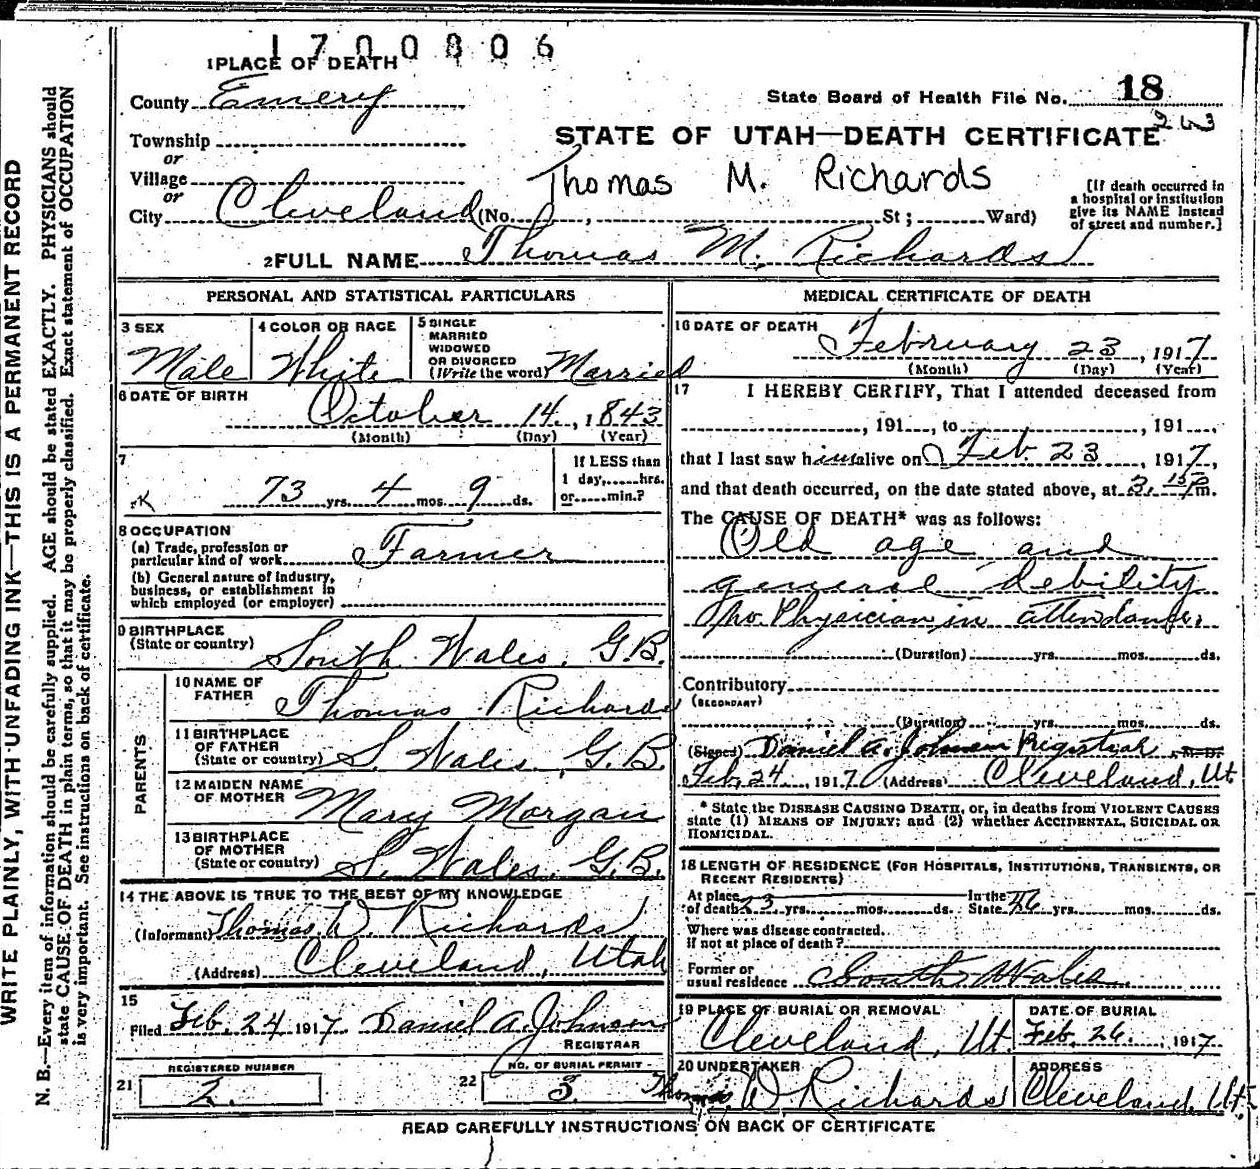 1700806
1 PLACE OF DEATH
County Emery
State Board of Health File No. 18
Township
or
STATE OF UTAH—DEATH CERTIFICATE
Village
or
Thomas M. Richards
City Cleveland (No. , St; Ward)
[If death occurred in
a hospital or institution
give its NAME instead
of street and number.]
2 FULL NAME Thomas M. Richards
PERSONAL AND STATISTICAL PARTICULARS
3 SEX
Male
4 COLOR OR RACE
White
5 SINGLE
MARRIED
WIDOWED
OR DIVORCED
(Write the word) Married
6 DATE OF BIRTH
October 14, 1843
(Month) (Day) (Year)
7
73 yrs. 4 mos. 9 ds.
If LESS than
1 day, hrs.
or min.?
8 OCCUPATION
(a) Trade, profession or
particular kind of work Farmer
(b) General nature of industry,
business, or establishment in
which employed (or employer)
9 BIRTHPLACE
(State or country) South Wales, G.B.
PARENTS
10 NAME OF
FATHER Thomas Richards
11 BIRTHPLACE
OF FATHER
(State or country) S. Wales, G.B.
12 MAIDEN NAME
OF MOTHER Mary Morgan
13 BIRTHPLACE
OF MOTHER
(State or country) S. Wales, G.B.
14 THE ABOVE IS TRUE TO THE BEST OF MY KNOWLEDGE
(Informant) Thomas W. Richards
(Address) Cleveland, Utah
15
Filed Feb. 24 1917 Daniel A. Johnson
REGISTRAR
21 REGISTERED NUMBER
2.
22 NO. OF BURIAL PERMIT
3.
MEDICAL CERTIFICATE OF DEATH
16 DATE OF DEATH
February 23, 1917
(Month) (Day) (Year)
17 I HEREBY CERTIFY, That I attended deceased from
, 191 , to , 191 ,
that I last saw him alive on Feb. 23, 1917,
and that death occurred, on the date stated above, at 3.15 P m.
The CAUSE OF DEATH* was as follows:
Old age and
general debility
no Physician in attendance.
(Duration) yrs. mos. ds.
Contributory
(SECONDARY)
(Duration) yrs. mos. ds.
(Signed) Daniel A. Johnson Registrar, M.D.
Feb, 24, 1917 (Address) Cleveland, Ut
* State the DISEASE CAUSING DEATH, or, in deaths from VIOLENT CAUSES
state (1) MEANS OF INJURY; and (2) whether ACCIDENTAL, SUICIDAL OR
HOMICIDAL.
18 LENGTH OF RESIDENCE (FOR HOSPITALS, INSTITUTIONS, TRANSIENTS, OR
RECENT RESIDENTS)
At place
of death 23 yrs. mos. ds. In the State yrs. mos. ds.
Where was disease contracted.
If not at place of death?
Former or
usual residence South Wales
19 PLACE OF BURIAL OR REMOVAL
Cleveland, Ut.
DATE OF BURIAL
Feb. 26, 1917
20 UNDERTAKER
Thomas W Richards
ADDRESS
Cleveland, Ut.
READ CAREFULLY INSTRUCTIONS ON BACK OF CERTIFICATE
WRITE PLAINLY, WITH UNFADING INK—THIS IS A PERMANENT RECORD
N. B.—Every item of information should be carefully supplied. AGE should be stated EXACTLY. PHYSICIANS should
state CAUSE OF DEATH in plain terms, so that it may be properly classified. Exact statement of OCCUPATION
is very important. See instructions on back of certificate.